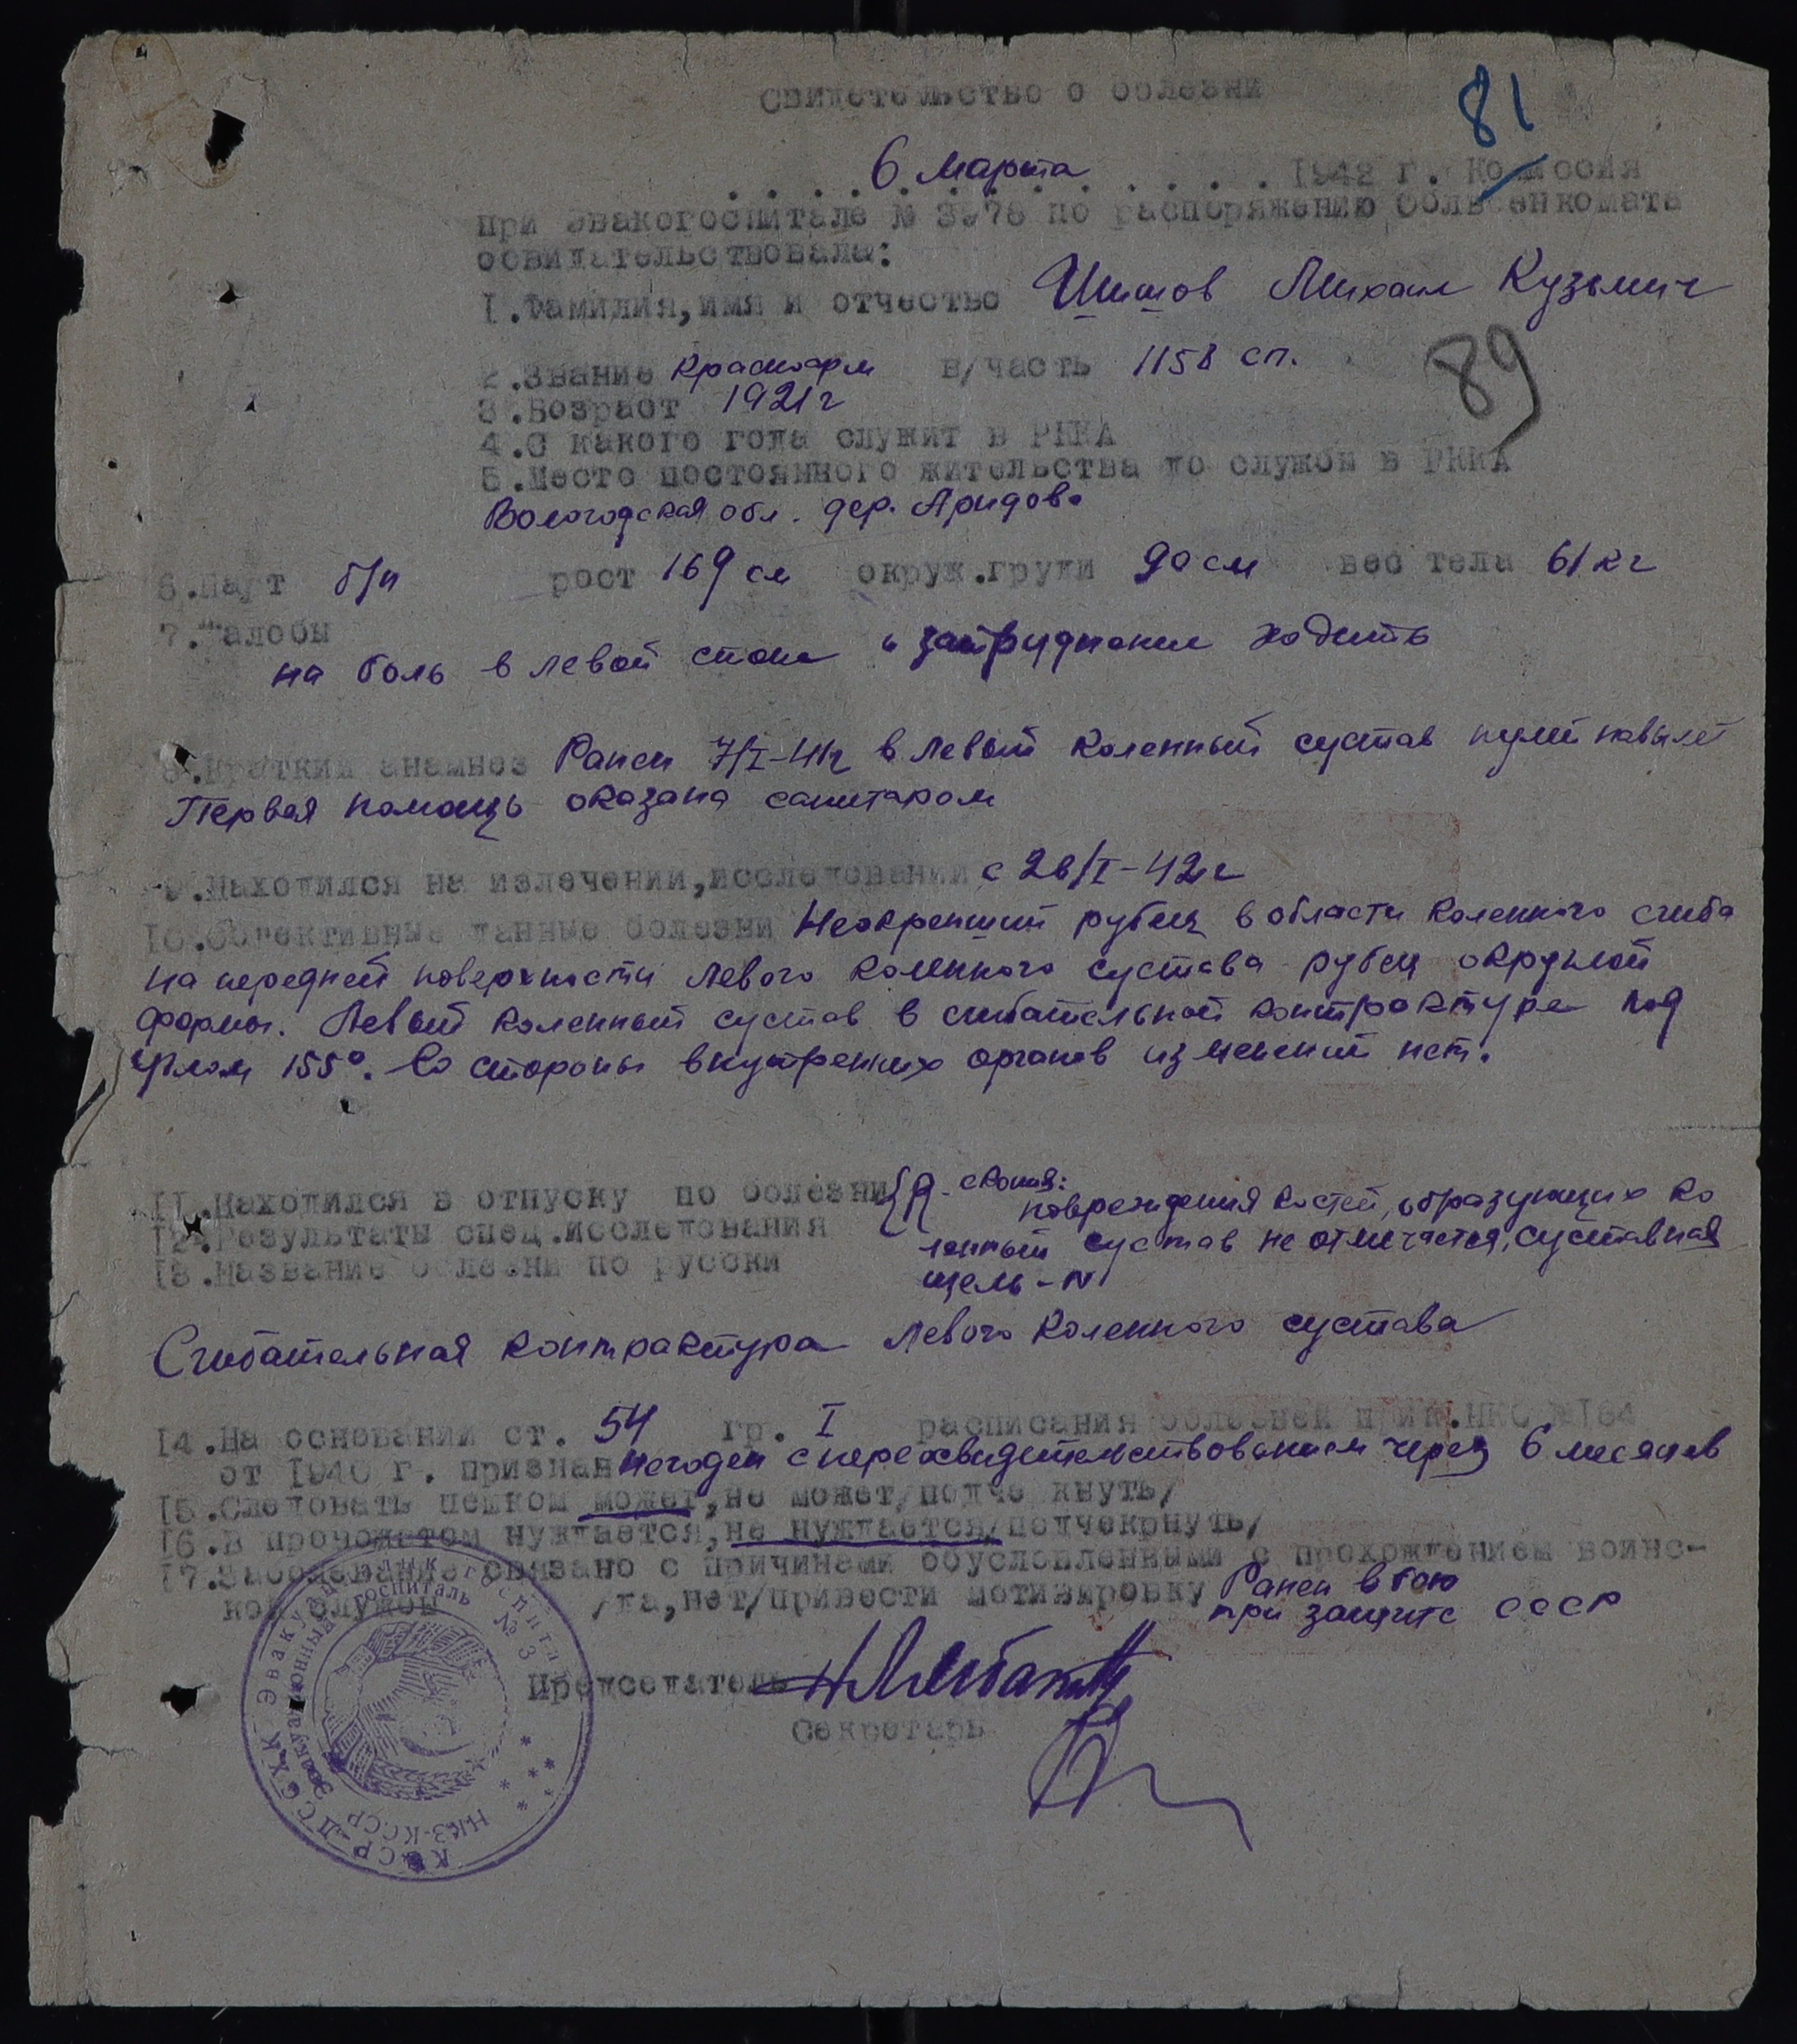 Свидетельство о болезни
81
6 марта 1942 г. Комиссия
при эвакогоспитале № по распоряжению облвоенкомата
освидательствовала:
1. Фамилия, имя и отчество Шишов Михаил Кузьмич
89
2. Звание красноарм в/часть 1158 сп.
3. Возраст 1921 г
4. С какого года служит в РККА
5. Место постоянного жительства до службы в РККА
Вологодская обл. дер. Аридово
6. Наут б/п рост 169 см окруж. груди 90 см вес тела 61 кг
7. Жалобы
на боль в левой стопе и затруднение ходить
8. Краткий анамнез Ранен 7/I-42г в левый коленный сустав пулей навылет
Первая помощь оказана санитаром
9. Находился на излечении, исследовании с 26/I-42г
10. Обективные данные болезни Неокрепший рубец в области коленного сгиба
на передней поверхности левого коленного сустава рубец округлой
формы. Левый коленный сустав в сгибательной контрактуре под
углом 155°. Со стороны внутренних органов изменений нет.
11. Находился в отпуску по болезни { R-скопия:
повреждения костей, образующих ко
12. Результаты спец. исследования ленный сустав не отмечается, суставная
13. Название болезни по русски щель - N
Сгибательная контрактура левого коленного сустава
14. На основании ст. 54 гр. I расписания болезней прик. НКО №184
от 1940 г. признан негоден с переосвидетельствованием через 6 месяцев
15. Следовать пешком может, не может/подче кнуть/
16. В провожатом нуждается, не нуждается/подчекрнуть/
17. Заболевание связано с причинами обусловленными с прохождением воинс-
кой службы /да, нет/привести мотивировку Ранен в бою
при защите СССР
Председатель
Секретарь
Эвакуационный госпиталь № 3
НКЗ-КССР